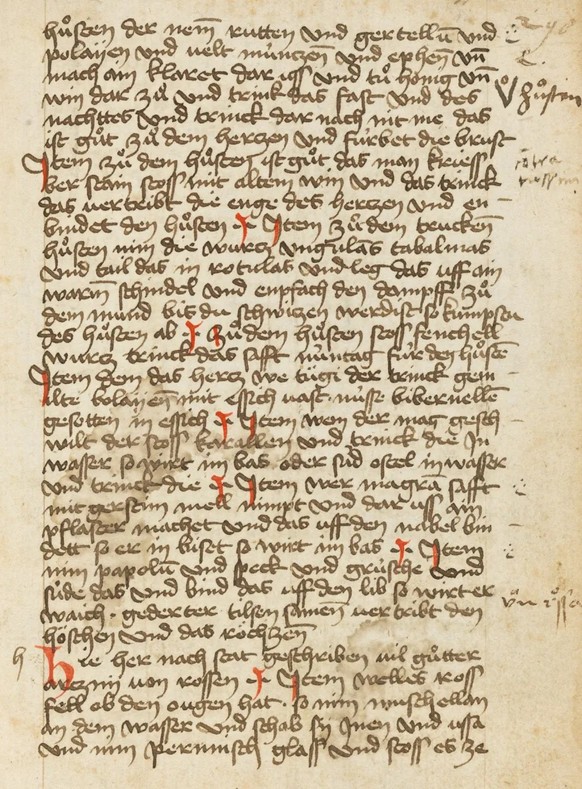 hůsten der nem̄ rutten vnd gertellū vnd
polaijen vnd velt můnczen̄ vnd ephen̄ vn̄
mach ain klaret dar uss vnd tů honig vn̄
win dar zů vnd trinck das fast vnd des
nachttes vnd trinck dar nach nit me das
ist gůt zů dem herczen vnd fúrbet die brust
Item zů dem hůsten ist gůt das man kriess
ber stain stoss mit altem win vnd das trinck
das vertribt die enge des herczen vnd en
bindet den hůsten Item zů dem trucken̄
hůsten nim die wurcz vngulas tabalmas
vnd tail das in rotulas vnd leg das uff ain
warm̄ schindel vnd enpfach den dampff zů
dem mund bis du schwiczen werdist so kumpstu
des hůsten ab Zů dem hůsten stoss fenchell
wurcz trinck das safft núntag fúr den hůstē
Item dem das hercz we tůgi der trinck gem
ilte bolaijen̄ mit essich vast nússe bibernellē
gesotten in essich Item wen der mag gesch
wilt der stoss karallen vnd trinck die In
wasser so wirt im bas oder súd ostel in wasser
vnd trinck die Item wer magra safft
mit gerstim mell nimpt vnd dar uss ain
pflaster machet vnd das uff den nabel bin
dett so er in búset so wirt im bas Item
nim papolū vnd speck vnd grúsche vnd
súde das vnd bind das uff den lib so wirt er
waich gederter tilsen samen vertribt den
höschen vnd das röchzen̄
h
Hie her nach stat geschriben vil gůtter
arczni von rossen Item welles ross
fell ob den ougen hat so nim muschellan
an dem wasser vnd schab sy Inen vnd ussa
vnd nim pernnisch glass vnd stoss es ze